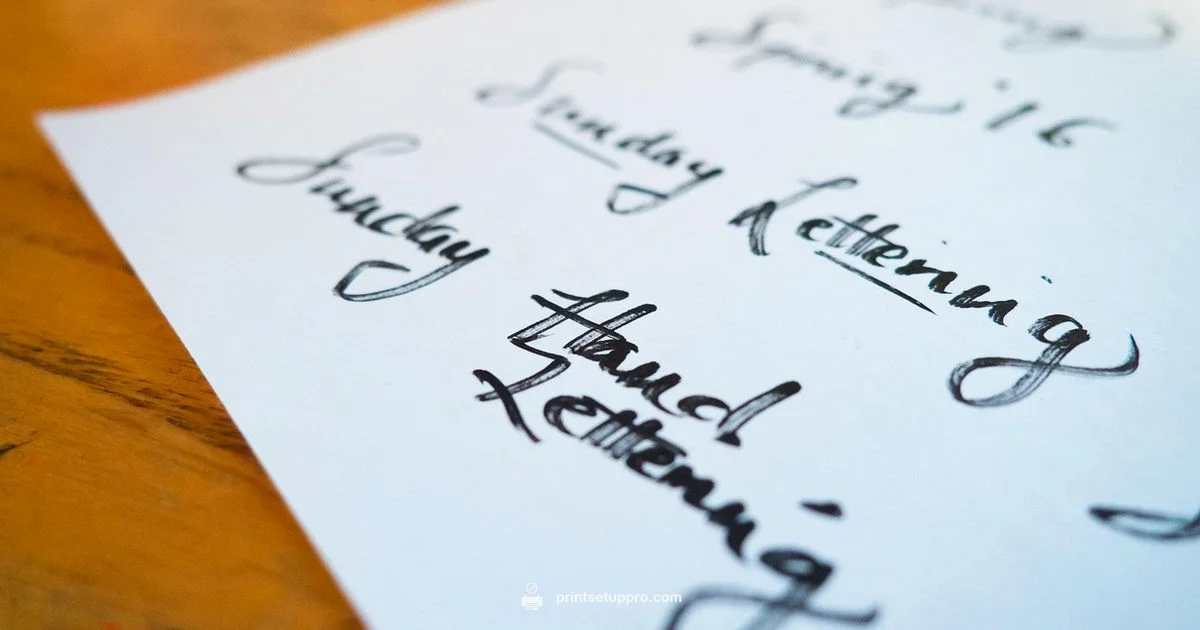 Spring '16
Sunday Lettering
Sunday
Hand
Lettering
printsetuppro.com